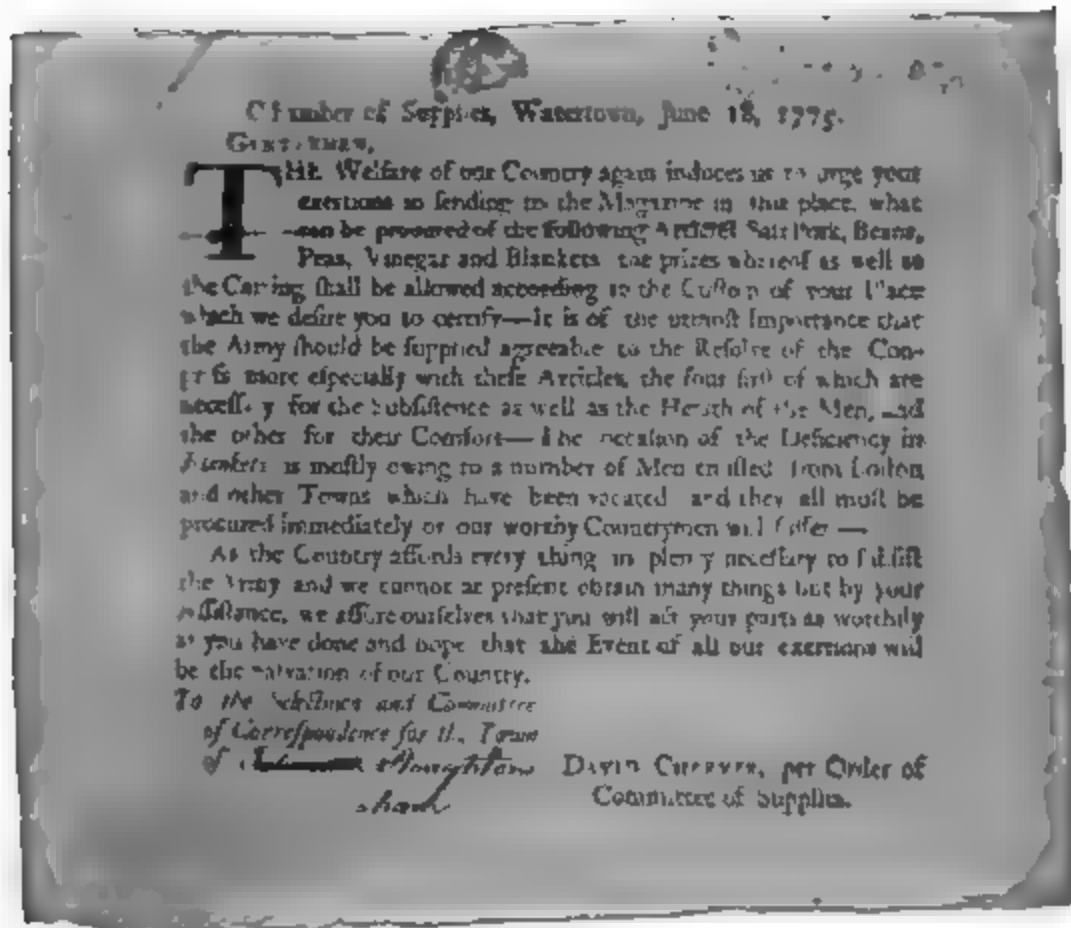 Chamber of Supplies, Watertown, June 18, 1775.
GENTLEMEN,
THE Welfare of our Country again induces us to urge your
exertions in ſending to the Magazine in this place, what
can be procured of the following Articles Salt Pork, Beans,
Peas, Vinegar and Blankets the prizes whereof as well as
the Carting ſhall be allowed according to the Cuſtom of your Place
which we deſire you to certify—It is of the utmoſt Importance that
the Army ſhould be ſupplied agreeable to the Reſolve of the Con-
greſs more eſpecially with theſe Articles, the four firſt of which are
neceſſary for the Subſiſtence as well as the Health of the Men, and
the other for their Comfort—The occaſion of the Deficiency in
Blankets is moſtly owing to a number of Men enliſted from Boſton
and other Towns which have been vacated and they all muſt be
procured immediately or our worthy Countrymen will ſuffer—
As the Country affords every thing in plenty neceſſary to ſubſiſt
the Army and we cannot at preſent obtain many things but by your
Aſſiſtance, we aſſure ourſelves that you will act your parts as worthily
as you have done and hope that the Event of all our exertions will
be the Salvation of our Country.
To the Selectmen and Committee
of Correſpondence for the Town
of Stoughton
ham
DAVID CHEEVER, per Order of
Committee of Supplies.